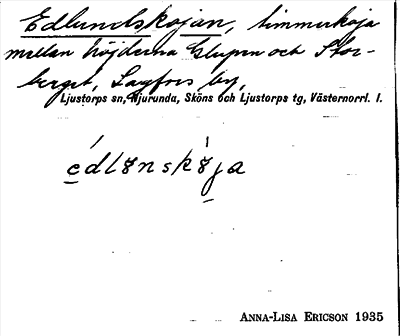 Edlundskojan, timmerkoja
mellan höjderna Glupen och Stor-
berget, Laxfors by,
Ljustorps sn, Njurunda, Sköns och Ljustorps tg, Västernorrl. l.
edlɵnskɵja
ANNA-LISA ERICSON 1935